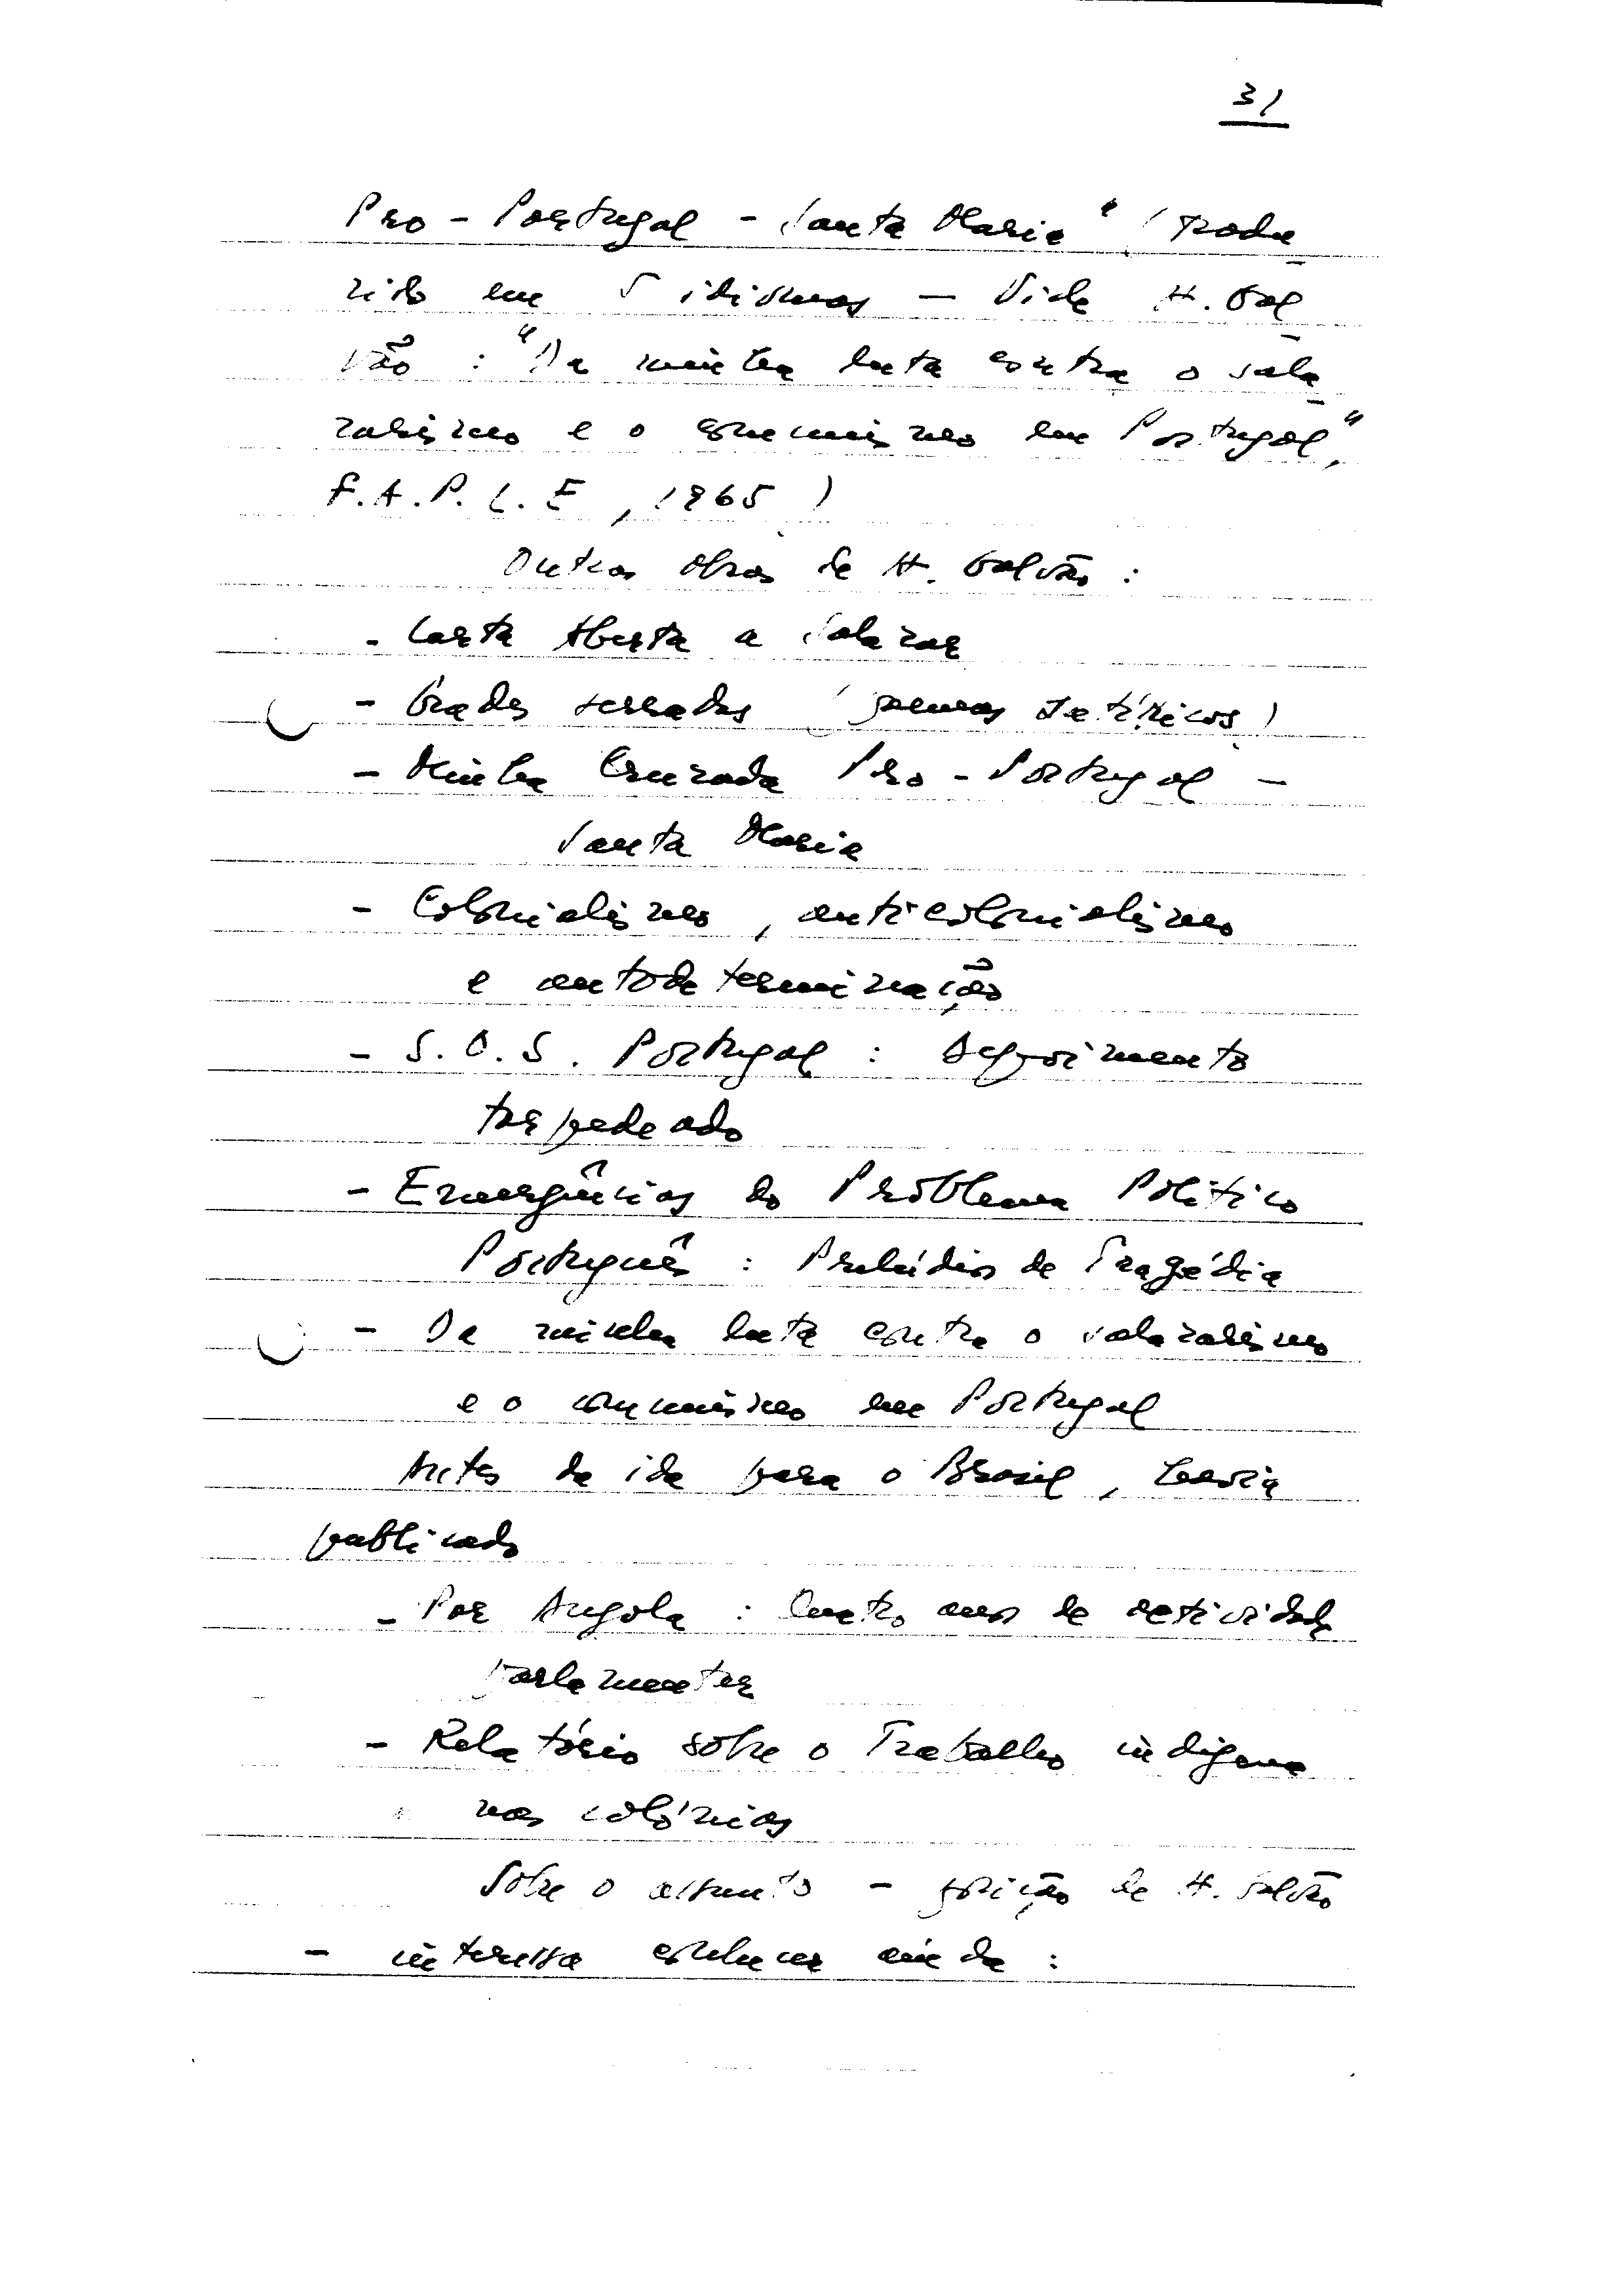 31
Pro - Portugal - Santa Maria" (tradu
zido em 5 idiomas - Vide H. Gal
vão : "Da minha luta contra o sala
zarismo e o comunismo em Portugal",
F.A.P.L.E, 1965)
Outras obras de H. Galvão :
- Carta Aberta a Salazar
- Grades serradas (poemas satíricos)
- Minha Cruzada Pro - Portugal -
Santa Maria
- Colonialismo, anticolonialismo
e autodeterminação
- S.O.S. Portugal : depoimento
torpedeado
- Emergências do Problema Político
Português : Prelúdios de Tragédia
- Da minha luta contra o salazarismo
e o comunismo em Portugal
Antes da ida para o Brasil, havia
publicado
- Por Angola : Quatro anos de actividade
parlamentar
- Relatório sobre o Trabalho indígena
nas colónias
Sobre o assunto - posição de H. Galvão
- interessa conhecer ainda :